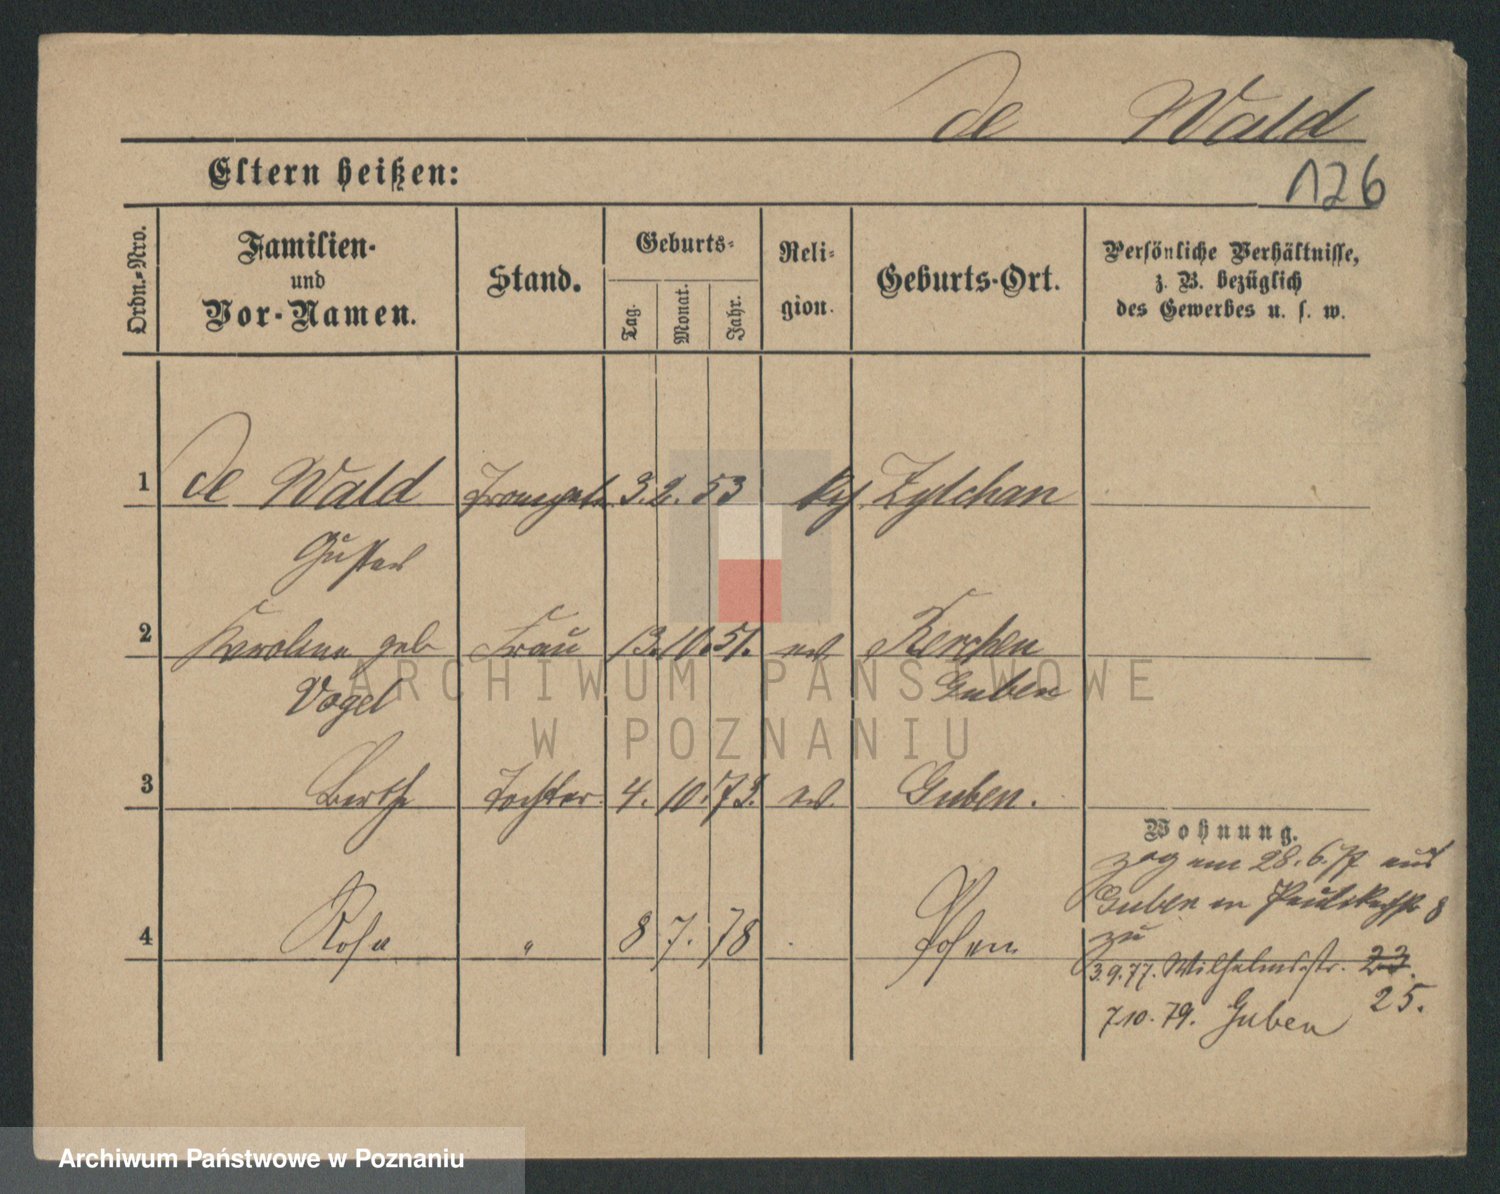 de Wald
Eltern heißen:
126
Ordn.-Nro.
Familien-
und
Vor-Namen.
Stand.
Geburts-
Tag.
Monat.
Jahr.
Reli-
gion.
Geburts-Ort.
Persönliche Verhältnisse,
z. B. bezüglich
des Gewerbes u. s. w.
1 de Wald 3. 2. 53
Gustav
2 Karoline geb Frau 13. 10. 51. ev.
Vogel Guben
3 Bertha Tochter 4. 10. 73. ev. Guben.
Wohnung.
zog am 28. 6. 77 aus
Guben in 8
zu
4 Rosa " 8 7. 78 Posen
3.9.77. Wilhelmsstr. 23.
25.
7.10.79. Guben
ARCHIWUM PAŃSTWOWE
W POZNANIU
Archiwum Państwowe w Poznaniu